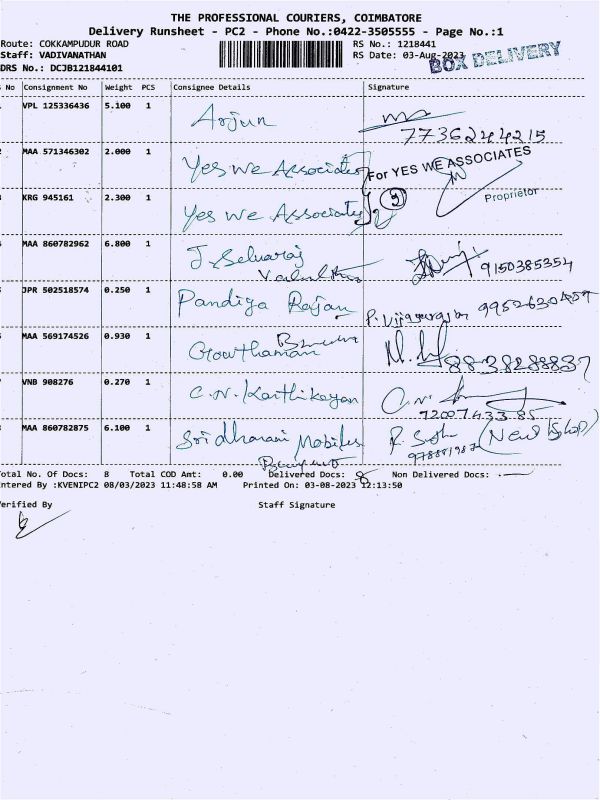 THE PROFESSIONAL COURIERS, COIMBATORE
Delivery Runsheet - PC2 - Phone No.:0422-3505555 - Page No.:1
Route: COKKAMPUDUR ROAD RS No.: 1218441
Staff: VADIVANATHAN RS Date: 03-Aug-2023 BOX DELIVERY
DRS No.: DCJB121844101
No Consignment No Weight PCS Consignee Details Signature
VPL 125336436 5.100 1 Arjun
7736244215
MAA 571346302 2.000 1 Yes We Associates For YES WE ASSOCIATES
KRG 945161 2.300 1 Yes We Associates Proprietor
MAA 860782962 6.800 1 J. Selvaraj 9150385354
JPR 502518574 0.250 1 Pandiya Rajan
MAA 569174526 0.930 1 Gowthaman 8838288837
VNB 908276 0.270 1 C.N. Karthikeyan C.N.
7200743385
MAA 860782875 6.100 1 Sri dharani Mobiles
otal No. Of Docs: 8 Total COD Amt: 0.00 Delivered Docs: 8 Non Delivered Docs: -
ntered By :KVENIPC2 08/03/2023 11:48:58 AM Printed On: 03-08-2023 12:13:50
erified By Staff Signature